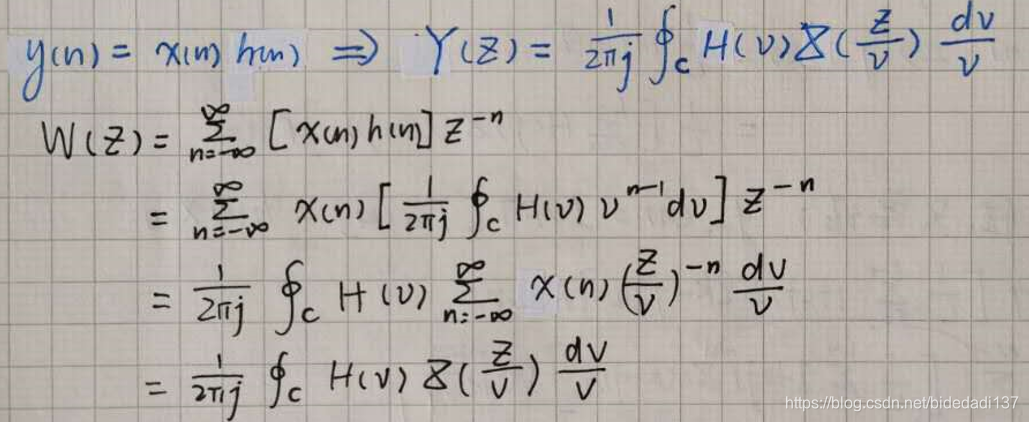 y(n) = x(n) h(n) ⇒ Y(Z) = \frac{1}{2πj} ∮_c H(v) X(\frac{Z}{v}) \frac{dv}{v}
W(Z) = \sum_{n=-∞}^{∞} [x(n) h(n)] Z^{-n}
= \sum_{n=-∞}^{∞} x(n) [\frac{1}{2πj} ∮_c H(v) v^{n-1} dv] Z^{-n}
= \frac{1}{2πj} ∮_c H(v) \sum_{n=-∞}^{∞} x(n) (\frac{Z}{v})^{-n} \frac{dv}{v}
= \frac{1}{2πj} ∮_c H(v) X(\frac{Z}{v}) \frac{dv}{v}
https://blog.csdn.net/bidedadi137